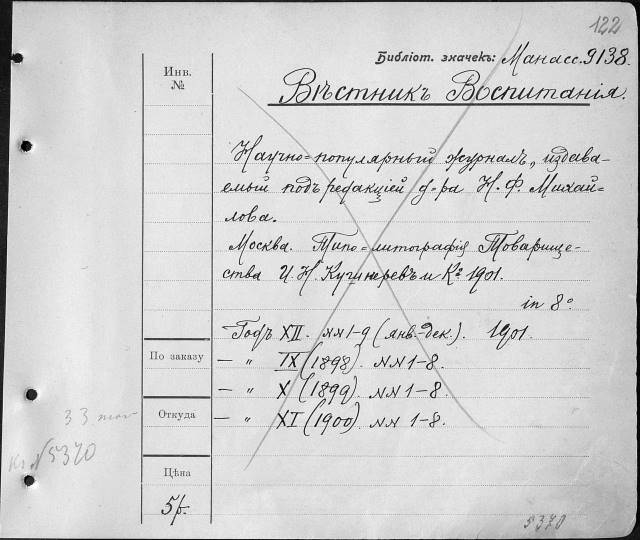 122
Библіот. значекъ: Манасс. 9138.
Инв.
№
Вѣстникъ Воспитанія.
Научно-популярный журналъ, издава-
емый подъ редакціей д-ра Н. Ф. Михай-
лова.
Москва. Типо-литографія Товарище-
ства И. Н. Кушнеревъ и Кº 1901.
in 8º
Годъ XII. №№ 1-9 (янв.-дек.). 1901.
По заказу
— „ IX (1898). №№ 1-8.
— „ X (1899). №№ 1-8.
Откуда
— „ XI (1900). №№ 1-8.
33
5370
Цѣна
5 р.
5370